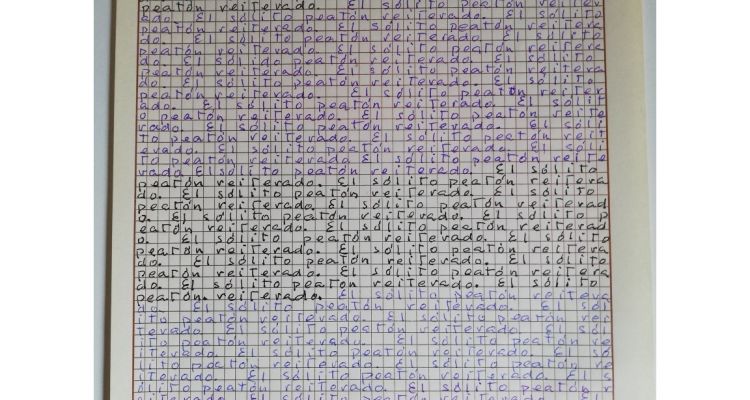 peatón reiterado. El sólito peatón reiter
ado. El sólito peatón reiterado. El sólito
peatón reiterado. El sólito peatón reitera
do. El sólito peatón reiterado. El sólito
peatón reiterado. El sólito peatón reitera
do. El sólido peatón reiterado. El sólito
peatón reiterado. El sólito peatón reitera
do. El sólito peatón reiterado. El sólito
peatón reiterado. El sólito peatón reiter
ado. El sólito peatón reiterado. El sólit
o peatón reiterado. El sólito peatón reite
rado. El sólito peatón reiterado. El sóli
to peatón reiterado. El sólito peatón reit
erado. El sólito peatón reiterado. El sóli
to peatón reiterado El sólito peatón reite
rado El sólito peatón reiterado. El sólito
peatón reiterado. El sólito peatón reitera
do. El sólito peatón reiterado. El sólito
peatón reiterado. El sólito peatón reiterad
o. El sólito peatón reiterado. El sólito p
eatón reiterado. El sólito peatón reiterad
o. El sólito peatón reiterado. El sólito
peatón reiterado. El sólito peatón reitera
do. El sólito peatón reiterado. El sólito
peatón reiterado. El sólito peatón reitera
do. El sólito peatón reiterado. El sólito
peatón. reiterado. El sólito peatón reitera
do. El sólito peatón reiterado. El sól
ito peatón reiterado. El sólito peatón rei
terado. El sólito peatón reiterado. El sól
ito peatón reiterado. El sólito peatón re
iterado. El sólito peatón reiterado. El só
lito peatón reiterado. El sólito peatón re
iterado. El sólito peatón reiterado. El s
ólito peatón reiterado. El sólito peatón r
eiterado. El sólito peatón reiterado. El